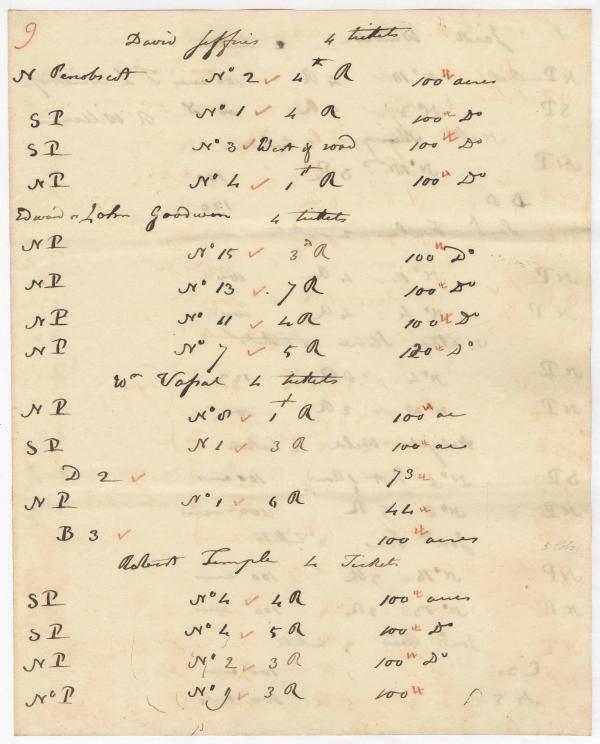 9
David Jeffries 4 tickets
N Penobscot No 2 4th R 100 acres
SP No 1 4 R 100 Do
SP No 3 West of road 100 Do
NP No 4 1st R 100 Do
Edward & John Goodwin 4 tickets
NP No 15 3d R 100 Do
NP No 13 7 R 100 Do
NP No 11 4 R 100 Do
NP No 7 5 R 120 Do
Wm Vassal 4 tickets
NP No 8 1st R 100 ac
SP N 1 3 R 100 ac
D 2 73
NP No 1 6 R 44
B 3 100 acres
Robert Temple 4 Tickets
SP No 4 4 R 100 acres
SP No 4 5 R 100 Do
NP No 2 3 R 100 Do
No P No 9 3 R 100